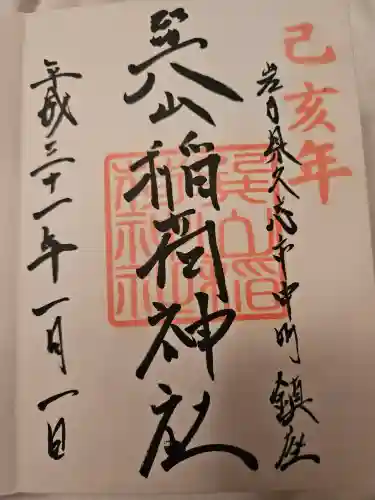 己亥年
岩手県久慈市中町 鎮座
巽山稲荷神社
平成三十一年一月一日